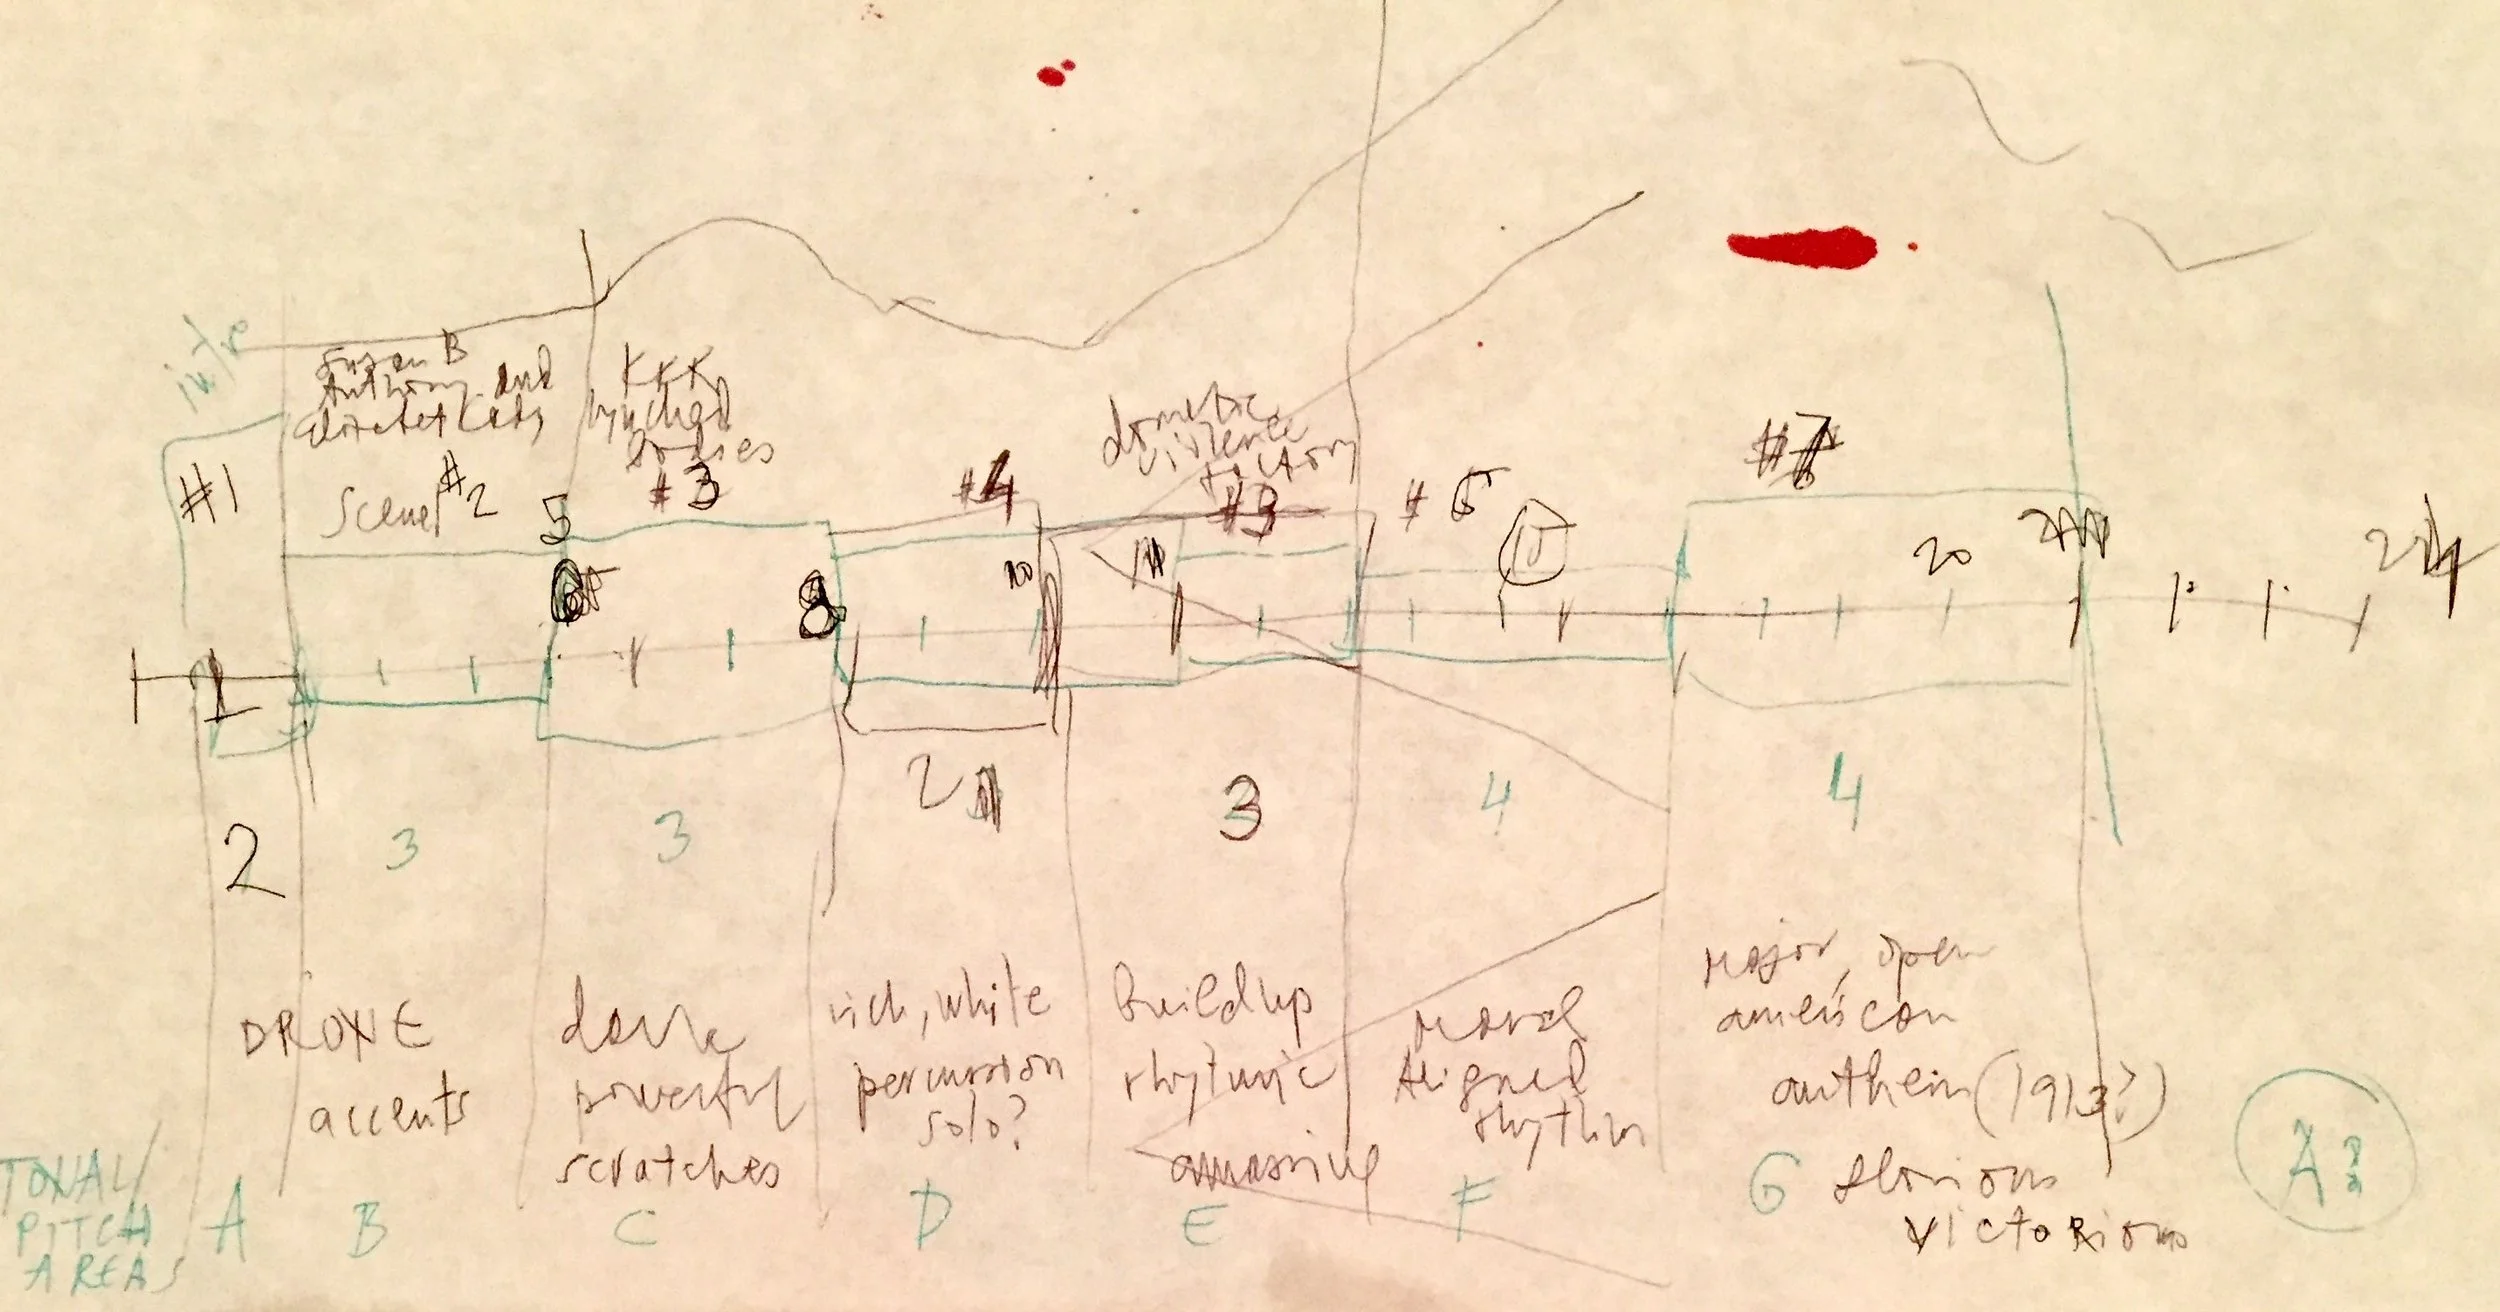 intro
Susan B
Anthony and
KKK
lynched
bodies
violence
factory
#1
Scene #2
5
#3
#4
#3
#
#7
8
10
15
20
24
1
2
3
3
2
3
4
4
DRONE
accents
dark
powerful
scratches
rich, white
percussion
solo?
build up
rhytmic
amassing
March
Aligned
rhythm
Major, open
american
anthem (1913?)
Glorious
victorious
TONAL/
PITCH
AREAS
A
B
C
D
E
F
G
A?